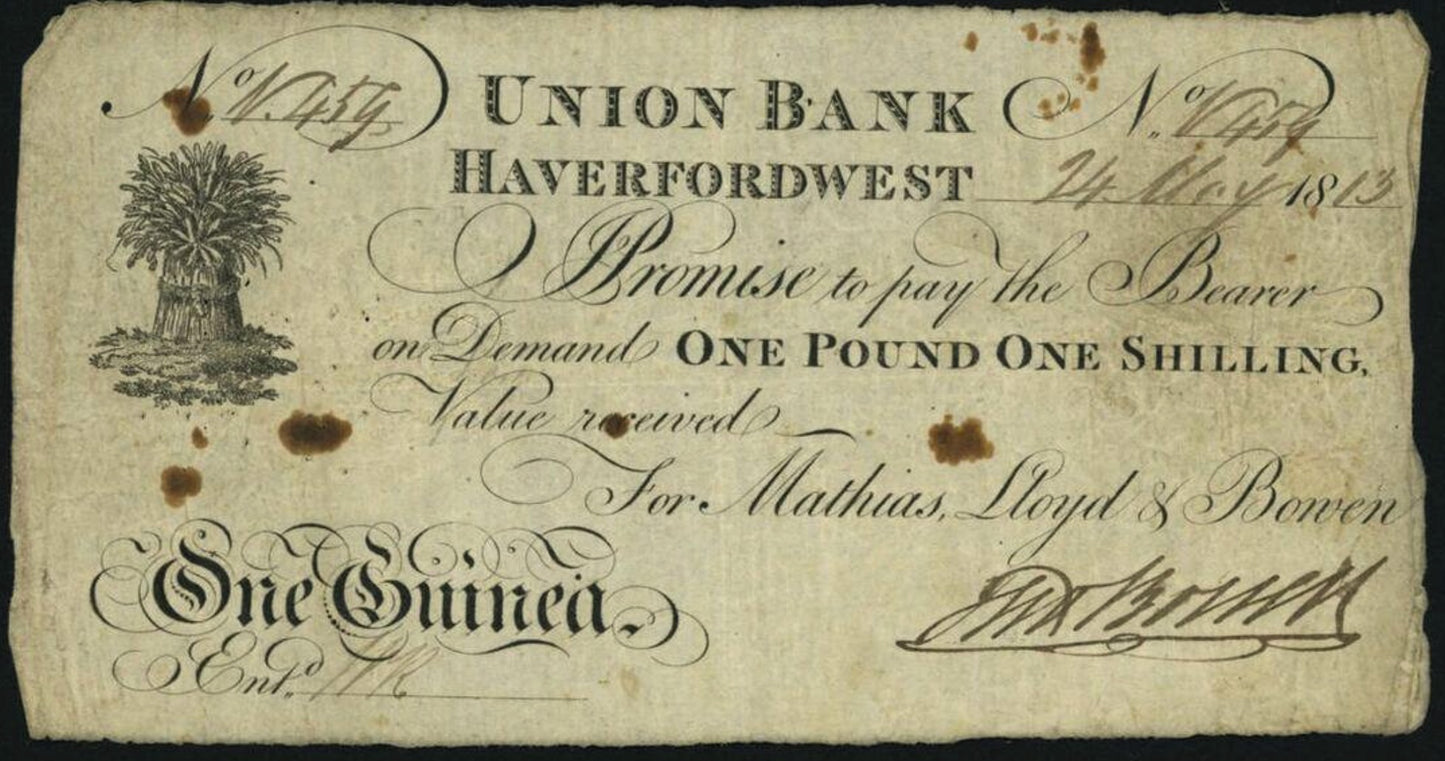 No N.459 UNION BANK No V459
HAVERFORDWEST 24 May 1813
I Promise to pay the Bearer
on Demand ONE POUND ONE SHILLING,
Value received
For Mathias, Lloyd & Bowen
One Guinea.
Entd.